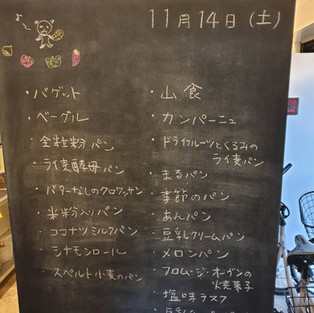 11月14日(土)
・バゲット
・ベーグル
・全粒粉パン
・ライ麦酵母パン
・バターなしのクロワッサン
・米粉入りパン
・ココナツミルクパン
・シナモンロール
・スペルト小麦のパン
・山食
・カンパーニュ
・ドライフルーツとくるみの
ライ麦パン
・まるパン
・季節のパン
・あんパン
・豆乳クリームパン
・メロンパン
・フロム・ジ・オーガンの
焼菓子
・塩味ラスク